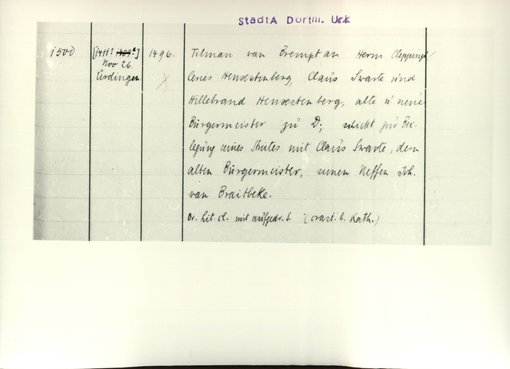 StadtA Dortm. Urk
1500 [1411? Nov 26. Uerdingen 1496. Tilman van Brempt an Herrn Clepping,
Arnes Henxstenberg, Claus Swarte und
Hillebrand Henxestenberg, alte u neue
Bürgermeister zu D; schickt zur Bei-
legung eines Streites mit Claus Swarte, dem
alten Bürgermeister, seinen Neffen Joh.
van Braitbeke.
Or. lit. cl. mit aufgedr. S (crast. b. Kath.)